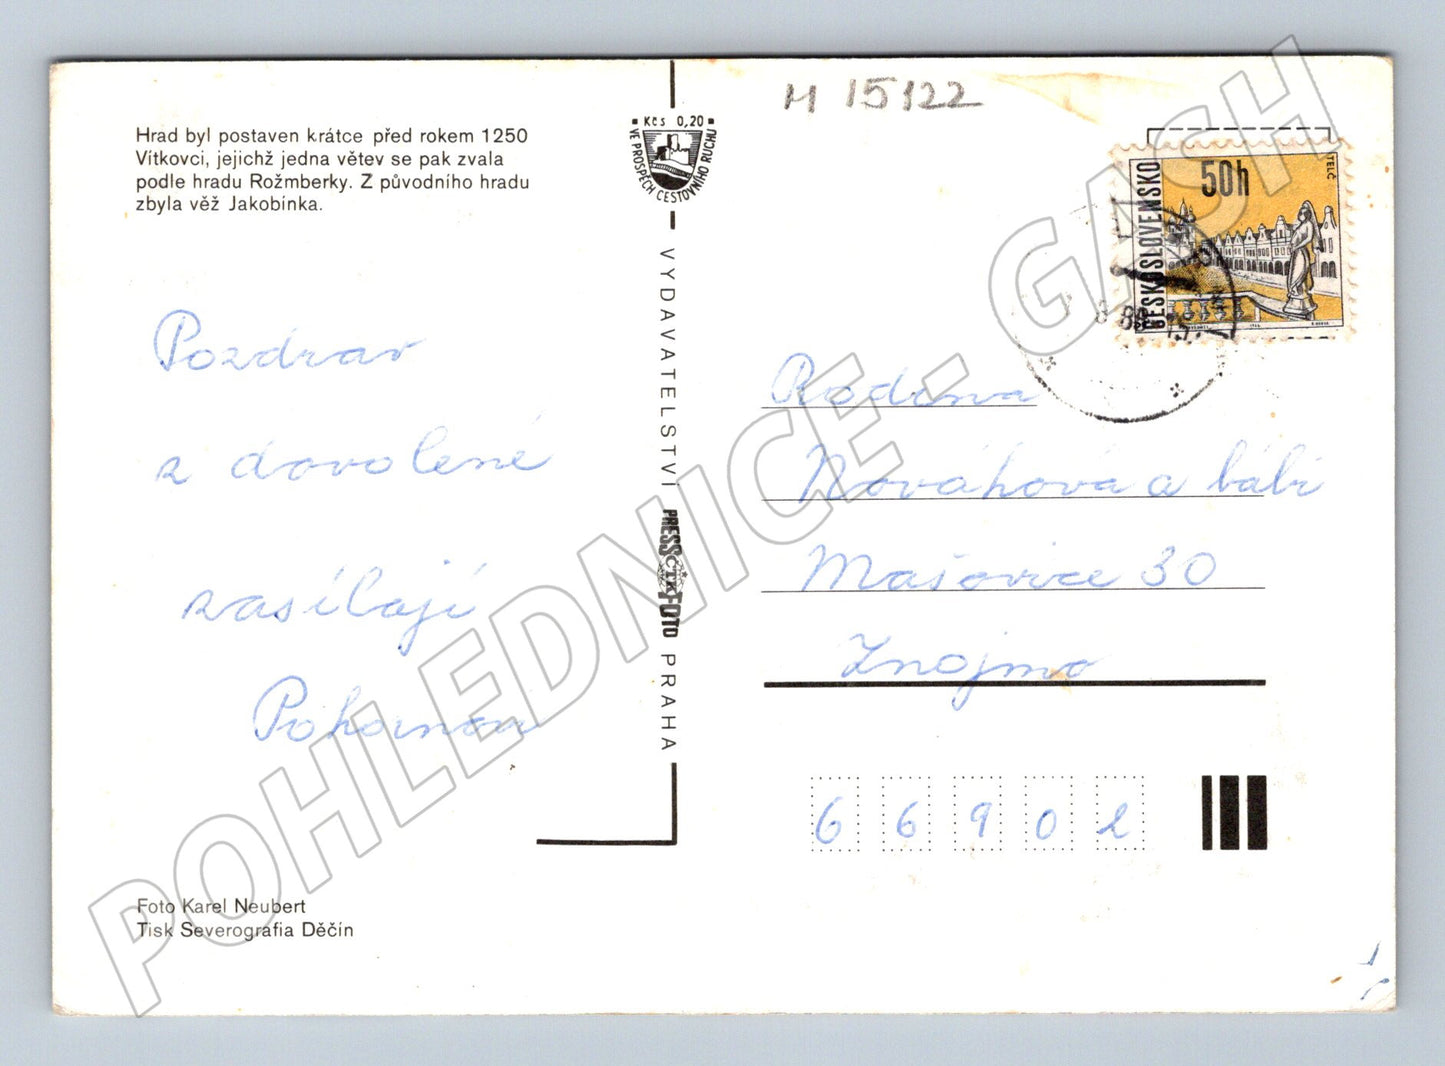 M 15122
Hrad byl postaven krátce před rokem 1250
Vítkovci, jejichž jedna větev se pak zvala
podle hradu Rožmberky. Z původního hradu
zbyla věž Jakobínka.
Kčs 0,20
VE PROSPĚCH CESTOVNÍHO RUCHU
VYDAVATELSTVÍ PRESSFOTO PRAHA
ČTK
ČESKOSLOVENSKO
50h
TELČ
Pozdrav
z dovolené
zasílají
Rodina
Nováhova a bábi
Mašovice 30
Znojmo
66902
Foto Karel Neubert
Tisk Severografia Děčín
POHLEDNICE - GASH